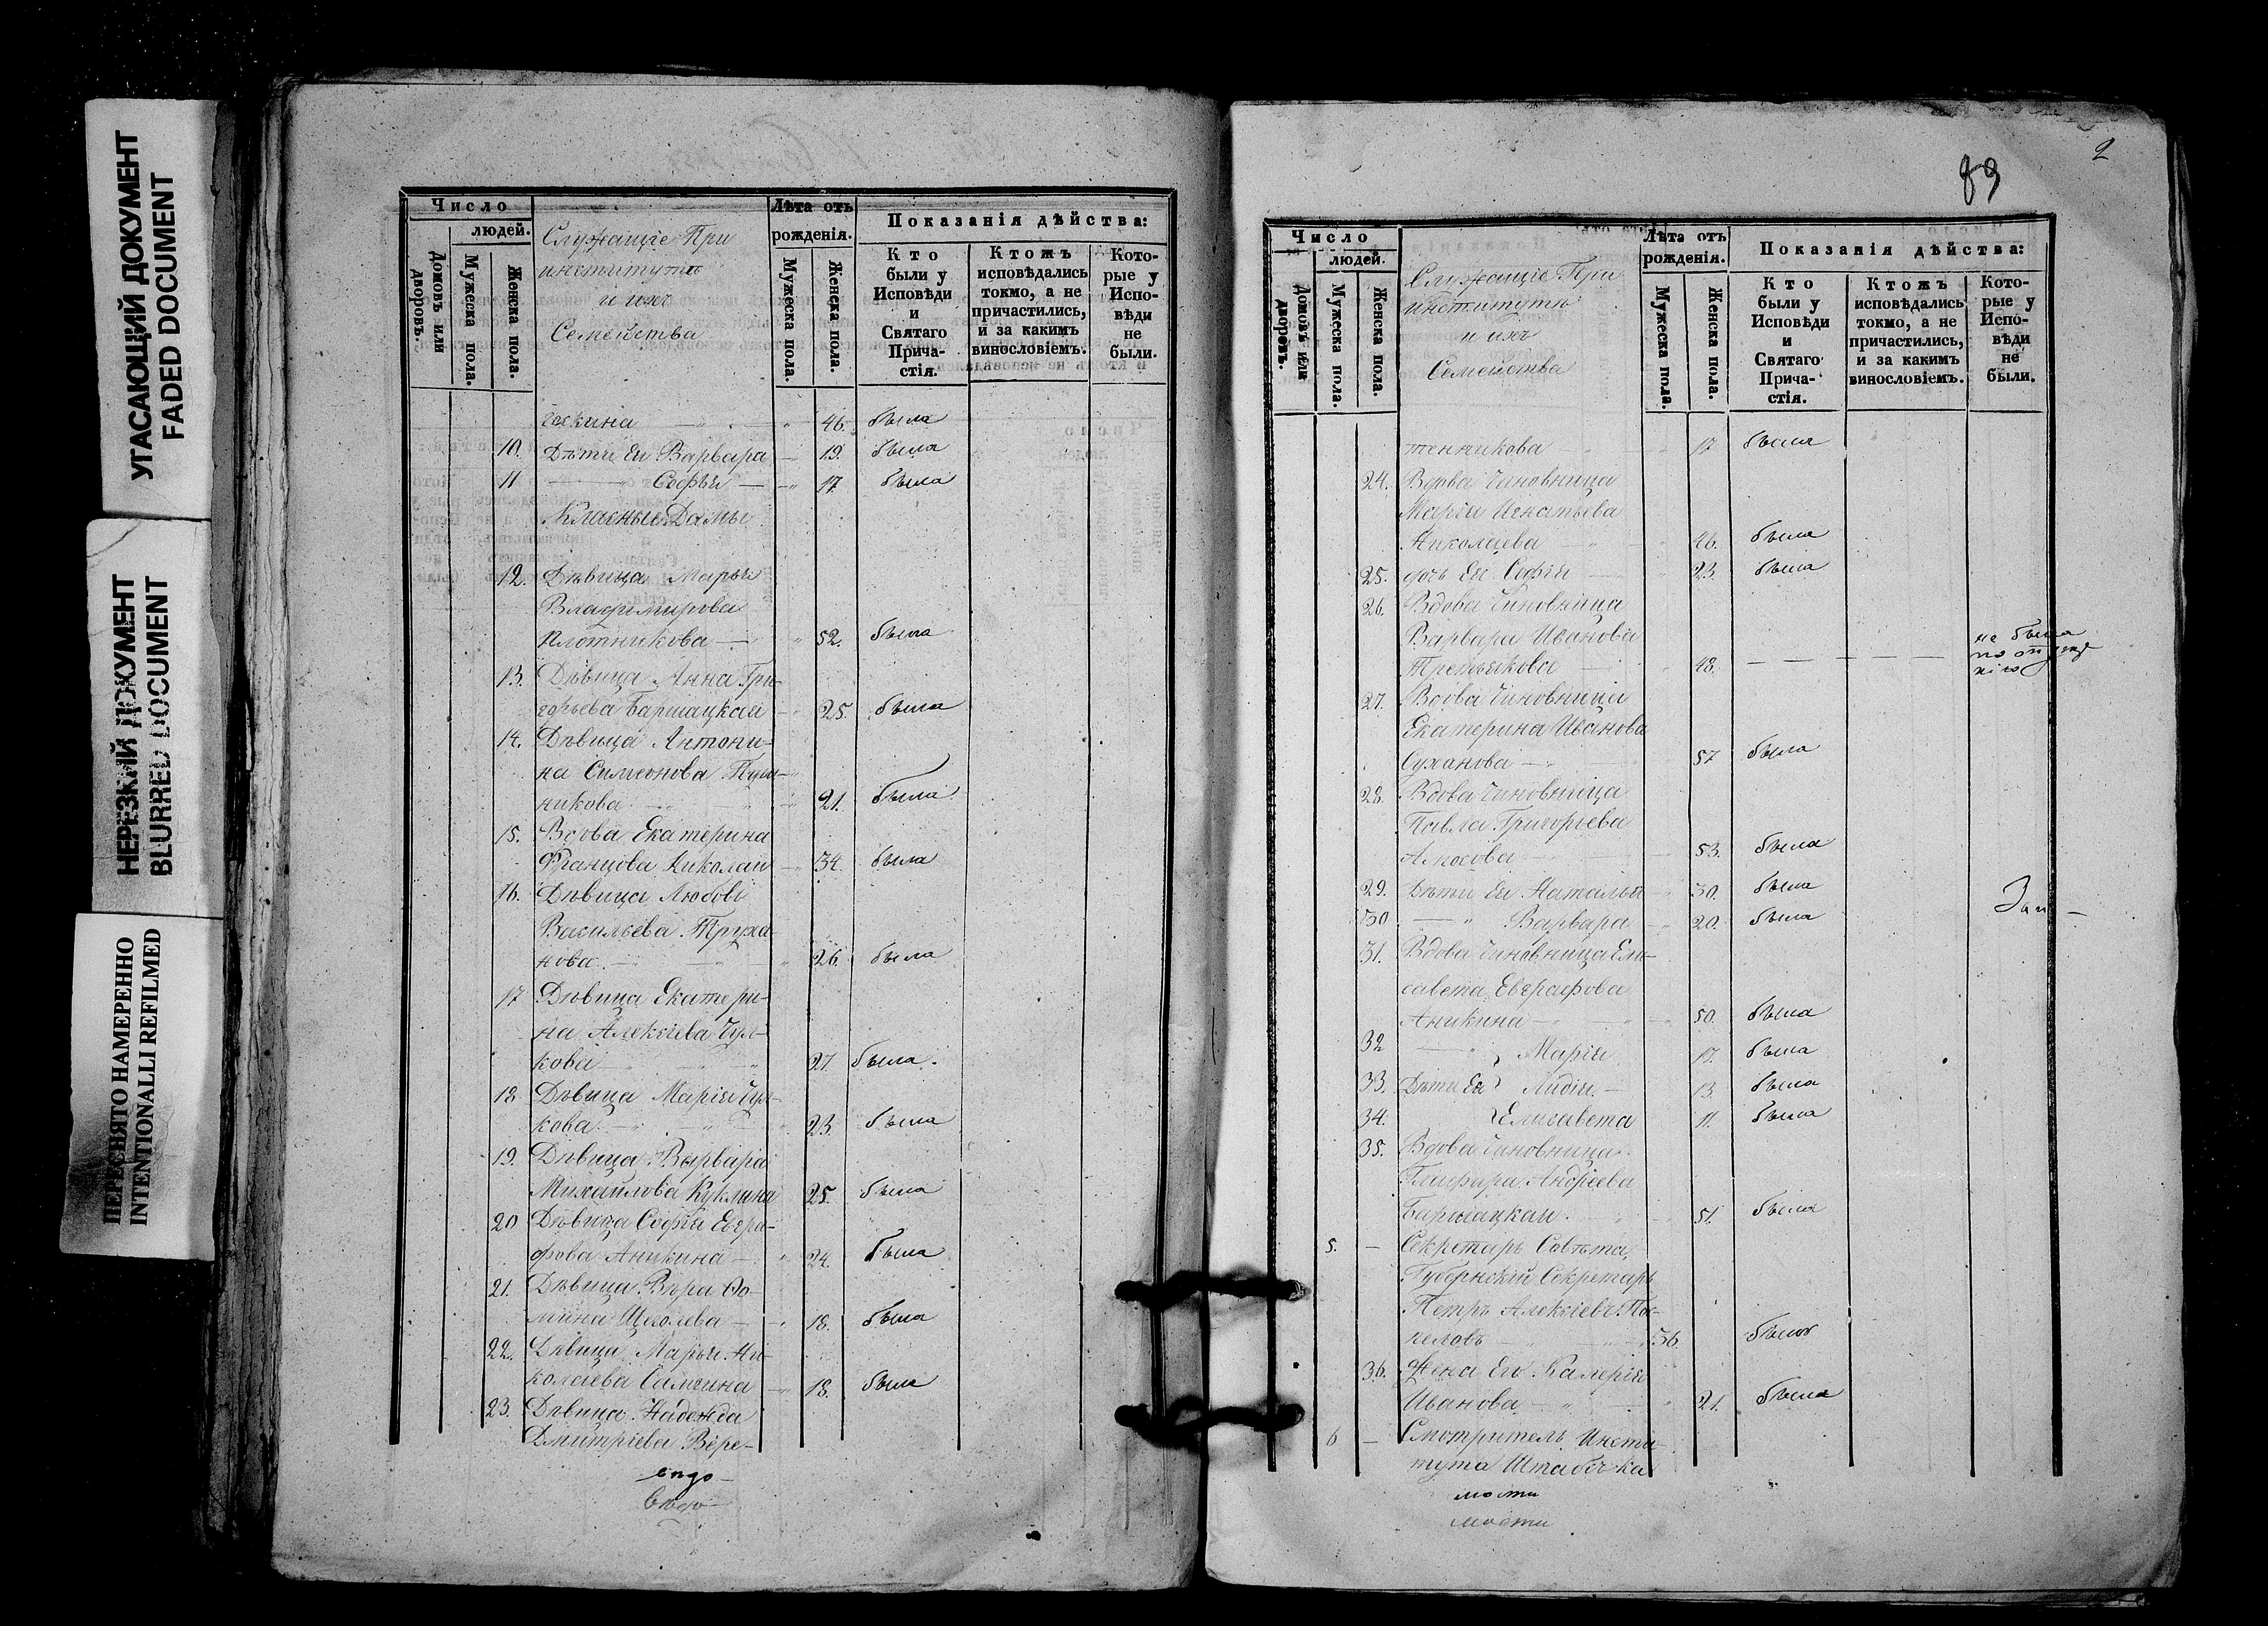 УГАСАЮЩИЙ ДОКУМЕНТ
FADED DOCUMENT
НЕРЕЗКИЙ ДОКУМЕНТ
BLURRED DOCUMENT
ПЕРЕСНЯТО НАМЕРЕННО
INTENTIONALLI REFILMED
Число
людей.
Домовъ или дворовъ.
Мужеска пола.
Женска пола.
Служащіе При
институтѣ
и ихъ
Семейства
Лѣта отъ рожденія.
Мужеска пола.
Женска пола.
Показанія дѣйства:
Кто были у Исповѣди и Святаго Прича-стія.
Ктожъ исповѣдались токмо, а не причастились, и за какимъ винословіемъ.
Кото-рые у Испо-вѣди не были.
46. была
10. Дѣти Ея Варвара 19. была
11 Софья 17. была
Класныя Дамы
12. Дѣвица Марья
Владимирова
Плотникова 52. была
13. Дѣвица Анна Гри-
горьева Баршацкая 25. была
14. Дѣвица Антони-
на Симеонова
никова 21. была
15. Вдова Екатерина
Францова Николаи 34. была
16. Дѣвица Любовь
Васильева Труха-
нова 26. была
17 Дѣвица Екатери-
на Алексіева Чул-
кова 27. была
18 Дѣвица Марія Чул-
кова 23. была
19. Дѣвица Варвара
Михайлова Куклина 25. была
20 Дѣвица Софія Евгра-
фова Аникина 24. была
21. Дѣвица Вѣра Ѳо-
мина Щеголева 18. была
22. Дѣвица Марья Ни-
колаева Самсина 18. была
23. Дѣвица Надежда
Дмитріева Вере-
вѣдо-
вѣдо-
2
89
Число
людей.
Домовъ или дворовъ.
Мужеска пола.
Женска пола.
Служащіе При
институтѣ
и ихъ
Семейства
Лѣта отъ рожденія.
Мужеска пола.
Женска пола.
Показанія дѣйства:
Кто были у Исповѣди и Святаго Прича-стія.
Ктожъ исповѣдались токмо, а не причастились, и за какимъ винословіемъ.
Кото-рые у Испо-вѣди не были.
тенникова 17 была
24. Вдова Чиновница
Марія Игнатьева
Николаева 46. была
25. дочь Ея Софія 23. была
26. Вдова Чиновница
Варвара Иванова
Третьякова 48. не была
по
27. Вдова Чиновница
Екатерина Иванова
Суханова 57 была
28. Вдова Чиновница
Павла Григорьева
Амосова 53. была
29. Дѣти Ея Наталья 30. была
30 Варвара 20. была
31. Вдова Чиновница Ели-
савета Евграфова
Аникина 50. была
32 Марія 17. была
33. Дѣти Ея Лидія 13. была
34. Елисавета 11. была
35. Вдова Чиновница
Глафира Андреева
Баршацкая 51. была
5. Секретарь Совѣта
Губернскій Секретарь
Петръ Алексіевъ Пос-
пеловъ 36. былъ
36. Жена Его Валерія
Иванова 21. была
6 Смотритель Инсти-
тута Штабсъ ка
мости
мости